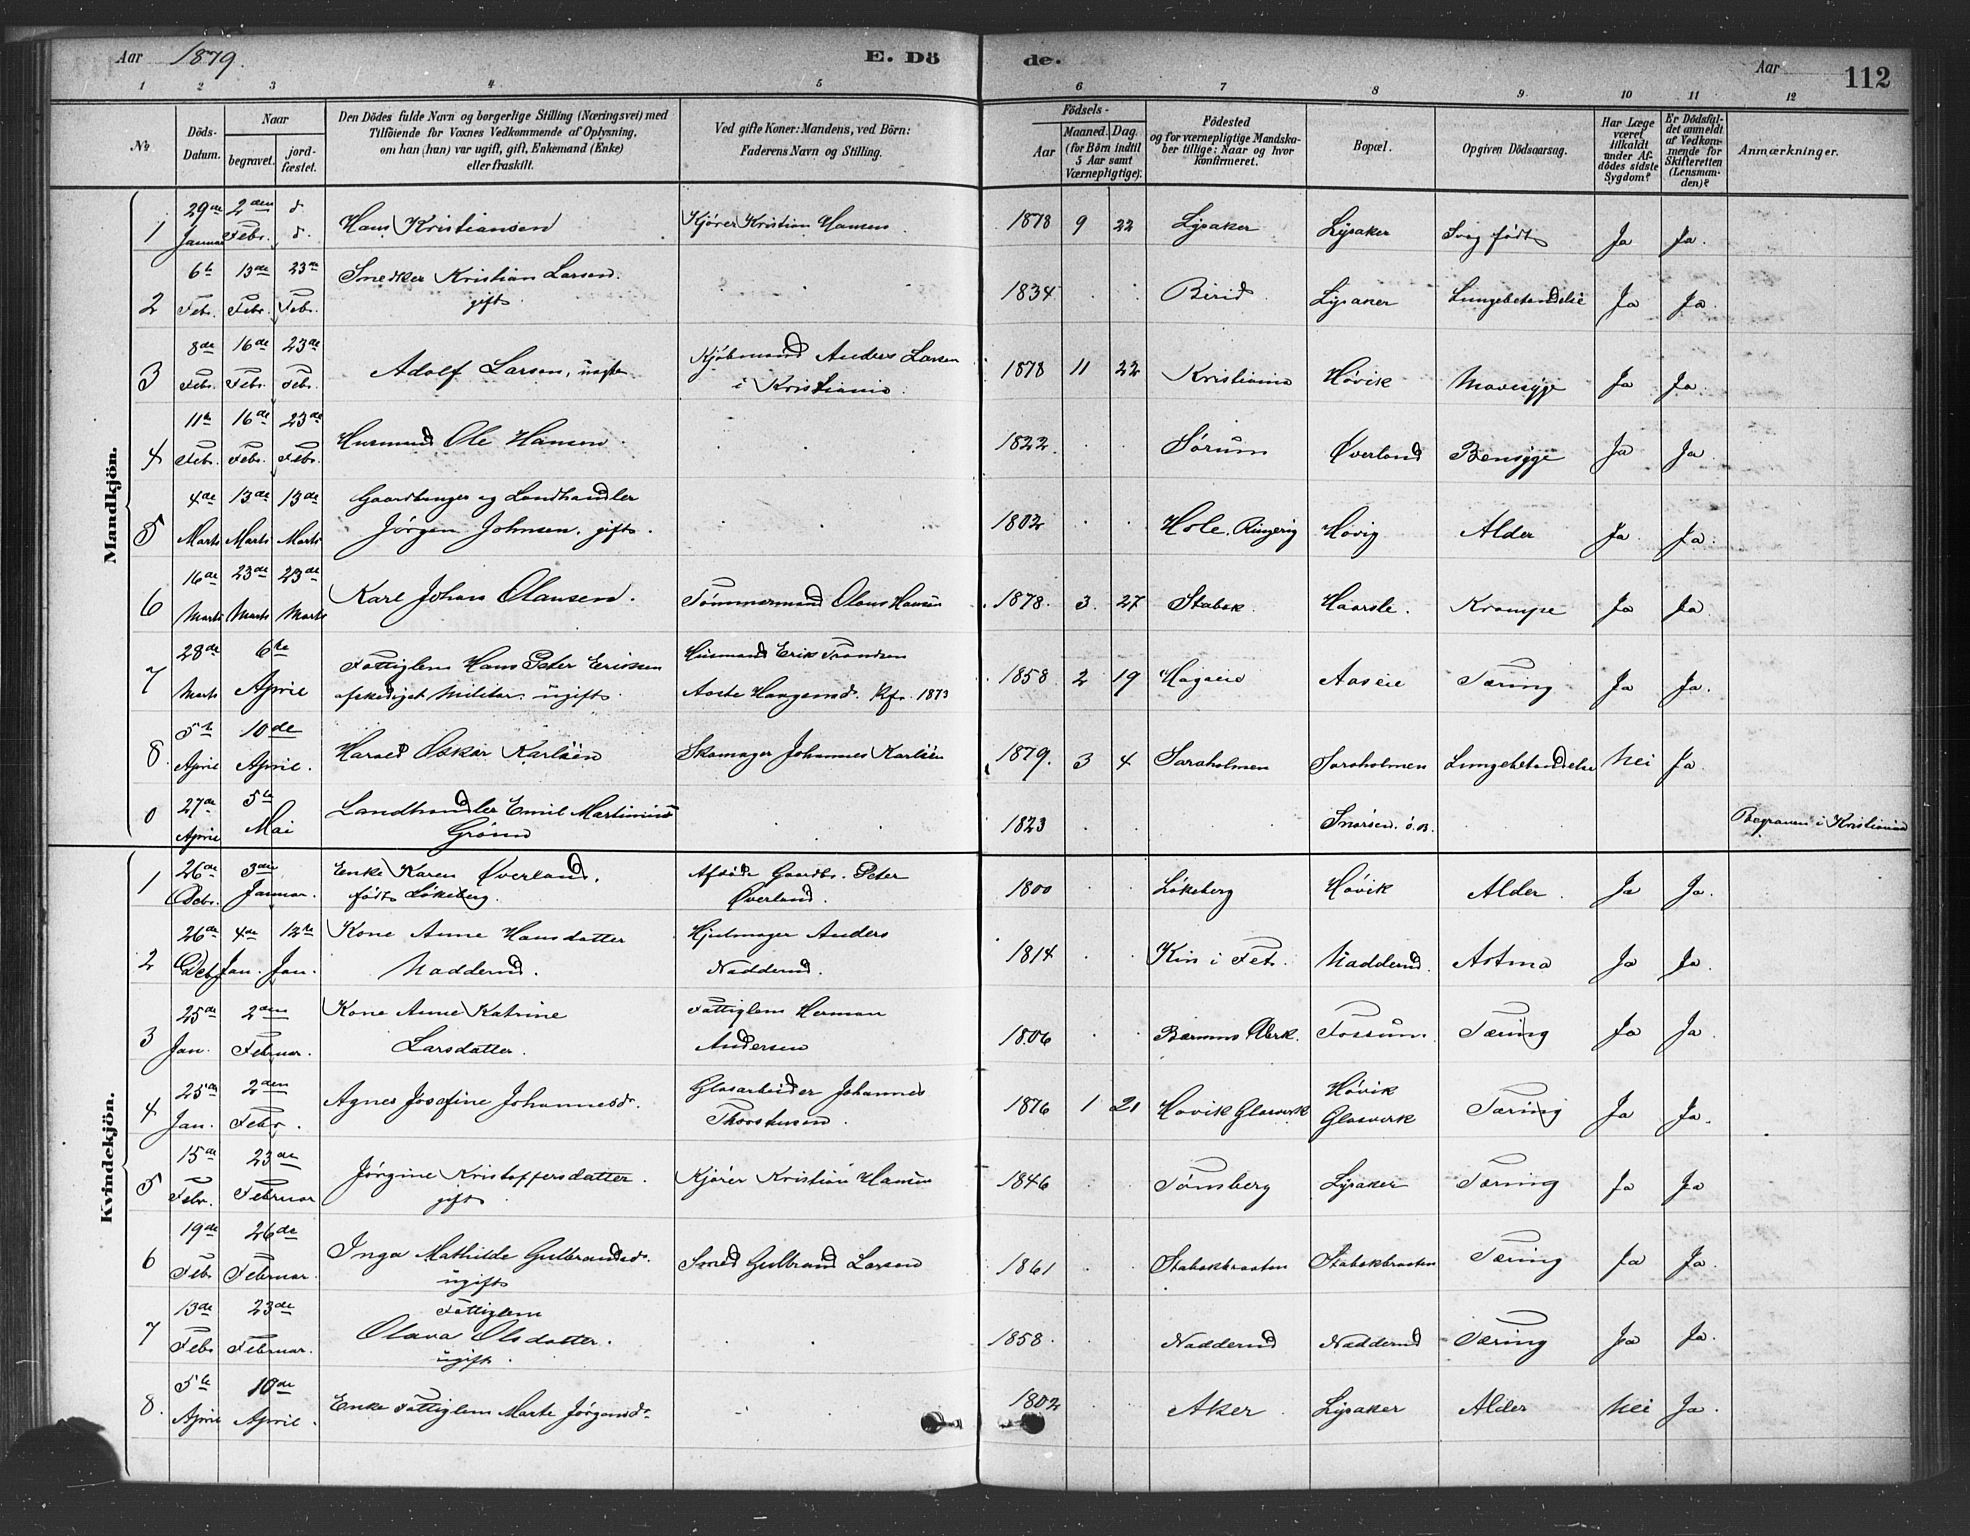 Aar 1879. E. Dö de. Aar 112
1 2 3 4 5 6 7 8 9 10 11 12
No.
Döds-Datum.
Naar
begravet. jord-fæstet.
Den Dödes fulde Navn og borgerlige Stilling (Næringsvei) med
Tilföiende for Voxnes Vedkommende af Oplysning,
om han (hun) var ugift, gift, Enkemand (Enke)
eller fraskilt.
Ved gifte Koner: Mandens, ved Börn:
Faderens Navn og Stilling.
Födsels-
Aar Maaned. Dag.
(for Börn indtil
5 Aar samt
Værnepligtige).
Födested
og for værnepligtige Mandska-
ber tillige: Naar og hvor
konfirmeret.
Bopæl.
Opgiven Dödsaarsag.
Har Læge
været
tilkaldt
under Af-
dödes sidste
Sygdom?
Er Dödsfal-
det anmeldt
af Vedkom-
mende for
Skifteretten
(Lensman-
den)?
Anmærkninger.
Mandkjön.
1 29de Januar 2den Febr. d. d. Hans Kristiansen Kjører Kristian Hansen 1878 9 22 Lysaker Lysaker Svag født Ja Ja.
2 6te Febr. 13de Febr. 23de Febr. Snedker Kristian Larsen.
gift 1834 Birid Lysaker Lungebetændelse Ja Ja.
3 8de Febr. 16de Febr. 23de Febr. Adolf Larsen, Kjøbmand Anders Larsen
i Kristiania. 1878 11 22 Kristiania Høvik Mavesyge Ja Ja.
4 11te Febr. 16de Febr. 23de Febr. Husmand Ole Hansen 1822 Sørum Øverland Bensyge Ja Ja.
5 4de Marts 13de Marts 13de Marts Gaardbruger og Landhandler
Jørgen Johnsen, gift. 1802 Hole, Ringerig Høvig Alder Ja Ja.
6 16de Marts 23de Marts 23de Marts Karl Johan Olausen. Tømmermand Olaus Hansen 1878. 3. 27 Stabæk Krampe Ja Ja
7 28de Marts 6te April Fattiglem Hans Peter Ericssen
afskediget Militær. ugift. Husmand Erik Trondsen
Haagensd. Kfr. 1873 1858 2 19 Hagaeie Aaseie Tæring Ja Ja.
8. 5te April 10de April. Harald Oskar Karlsen Skomager Johannes Karlsen 1879. 3 4 Saraholmen Saraholmen Lungebetændelse Nei Ja.
0 27de April 5te Mai Landhandler Emil Martinius
Grønn 1823 Begraven i Kristiania
Kvindekjön.
1 26de Debr. 3die Januar. Enke Karen Øverland,
født Løkeberg. Afdøde Gaardbr. Peter
Øverland. 1800 Løkeberg Høvik Alder. Ja Ja.
2 26de Debr. 4de Jan. 12te Jan. Kone Anne Hansdatter
Nadderud. Hjulmager Anders
Nadderud. 1814 Nadderud. Astma Ja Ja.
3 25de Jan. 2den Februar. Kone Anne Katrine
Larsdatter. Fattiglem Herman
Andersen 1806 Bærums Værk. Fossum. Tæring Ja Ja
4 25de Jan. 2den Febr. Agnes Josefine Johannesdr. Glasarbeider Johannes
Thorstensen. 1876 1 21 Høvik Glasværk Høvik
Glasværk Tæring Ja Ja.
5 15de Febr. 23de Februar Jørgine Kristoffersdatter.
gift Kjører Kristian Hansen 1846 Tønsberg Lysaker Tæring Ja Ja
6 19de Febr. 26de Februar. Inga Mathilde Gulbrandsdr.
ugift Smed Gulbrand Larsen 1861 Stabækbraaten Stabækbraaten Tæring Ja Ja.
7 13de Febr. 23de Februar. Fattiglem
Olava Olsdatter.
ugift. 1858. Nadderud Nadderud Tæring Ja Ja.
8. 5te April 10de April. Enke Fattiglem Marte Jørgensdr. 1802 Aker Lysaker Alder Nei Ja.